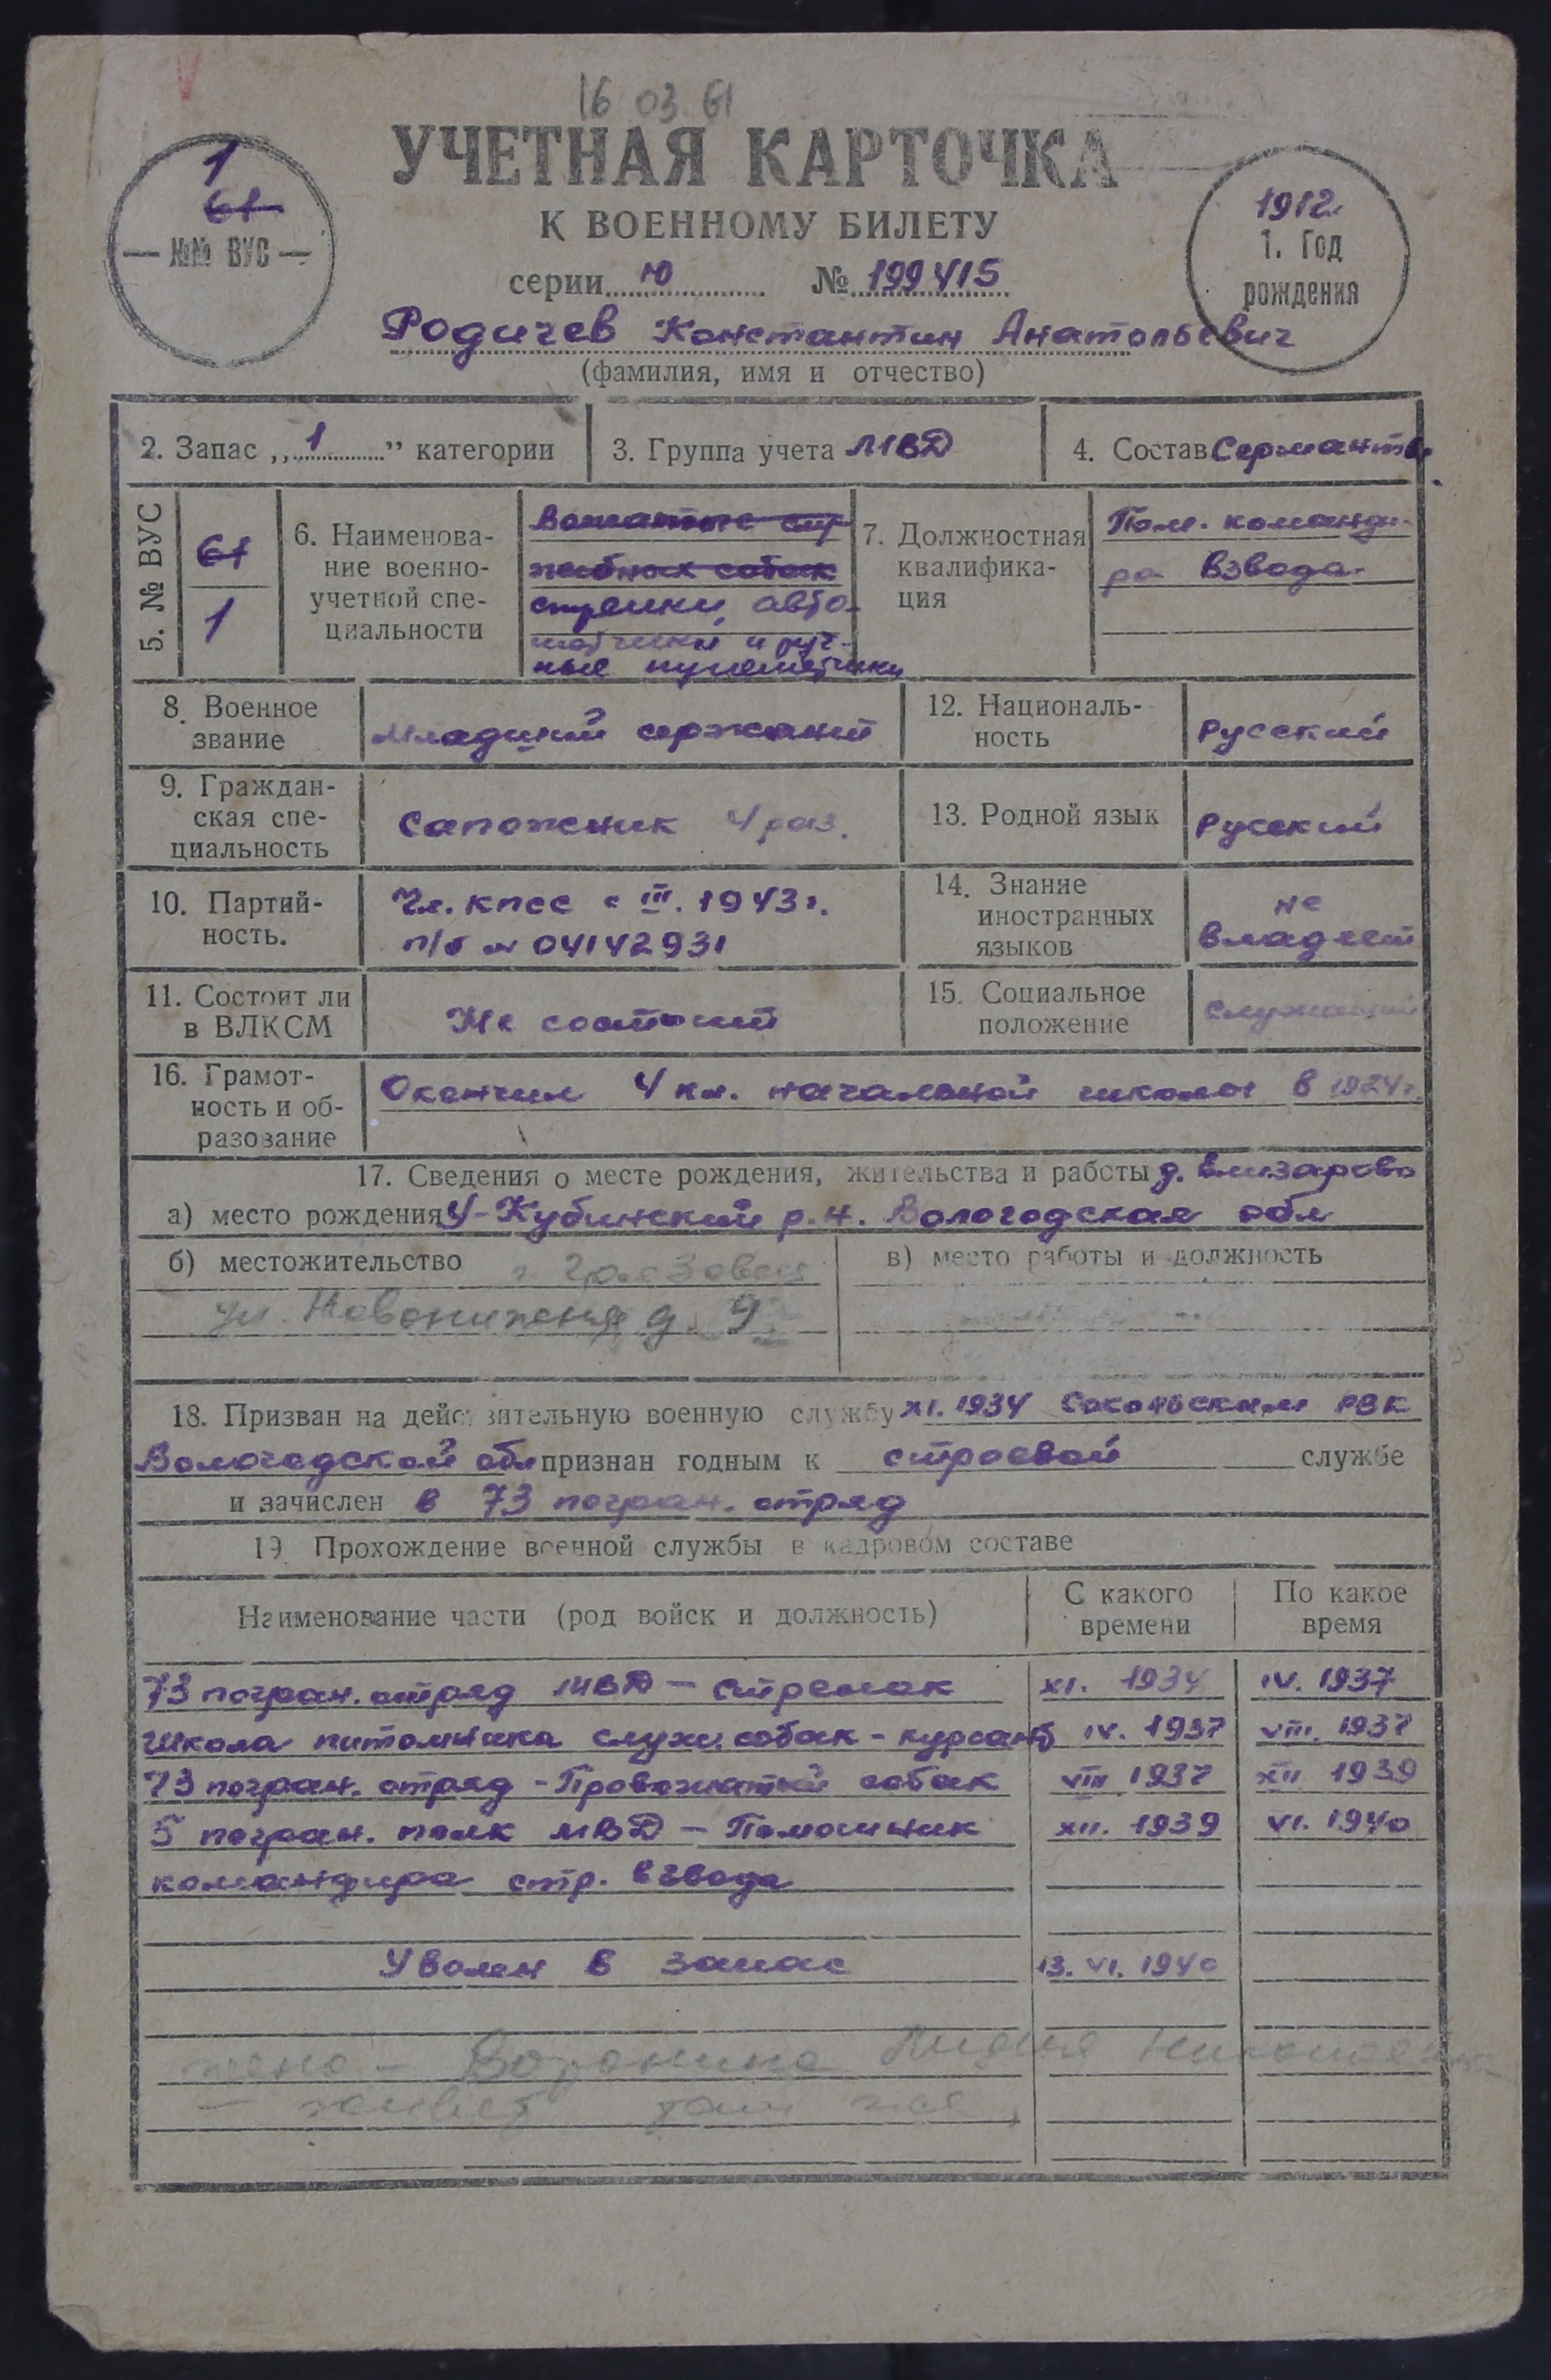 16 03 61
УЧЕТНАЯ КАРТОЧКА
К ВОЕННОМУ БИЛЕТУ
серии Ю № 199415
1
61
№№ ВУС
1912
1. Год
рождения
Родичев Константин Анатольевич
(фамилия, имя и отчество)
2. Запас „1" категории
3. Группа учета МВД
4. Состав Сержанты
5. № ВУС
61
1
6. Наименова-
ние военно-
учетной спе-
циальности
Вожатые слу
жебных собак
стрелки, авто-
матчики и руч-
ные пулеметчики
7. Должностная
квалифика-
ция
Пом. команди-
ра взвода
8. Военное
звание
Младший сержант
12. Националь-
ность
Русский
9. Граждан-
ская спе-
циальность
Сапожник 4 раз.
13. Родной язык
Русский
10. Партий-
ность.
Чл. КПСС с III. 1943 г.
п/б № 04142931
14. Знание
иностранных
языков
не
владеет
11. Состоит ли
в ВЛКСМ
Не состоит
15. Социальное
положение
Служащий
16. Грамот-
ность и об-
разование
Окончил 4 кл. начальной школы в 1924 г.
17. Сведения о месте рождения, жительства и работы д. Елизарово
а) место рождения У-Кубинский р.н. Вологодская обл
б) местожительство г. Грязовец
ул. д. 9
в) место работы и должность
18. Призван на действительную военную службу XI. 1934 Сокольским РВК
Вологодской обл признан годным к строевой службе
и зачислен в 73 погран. отряд
19 Прохождение военной службы в кадровом составе
Наименование части (род войск и должность)
С какого
времени
По какое
время
73 погран. отряд МВД – стрелок XI. 1934 IV. 1937
Школа питомника служ. собак – курсант IV. 1937 VIII. 1937
73 погран. отряд – Провожатый собак VIII 1937 XII 1939
5 погран. полк МВД – Помощник XII. 1939 VI. 1940
командира стр. взвода
Уволен в запас 13. VI. 1940
жена – Воронина Лидия Николаевна
– живет там же